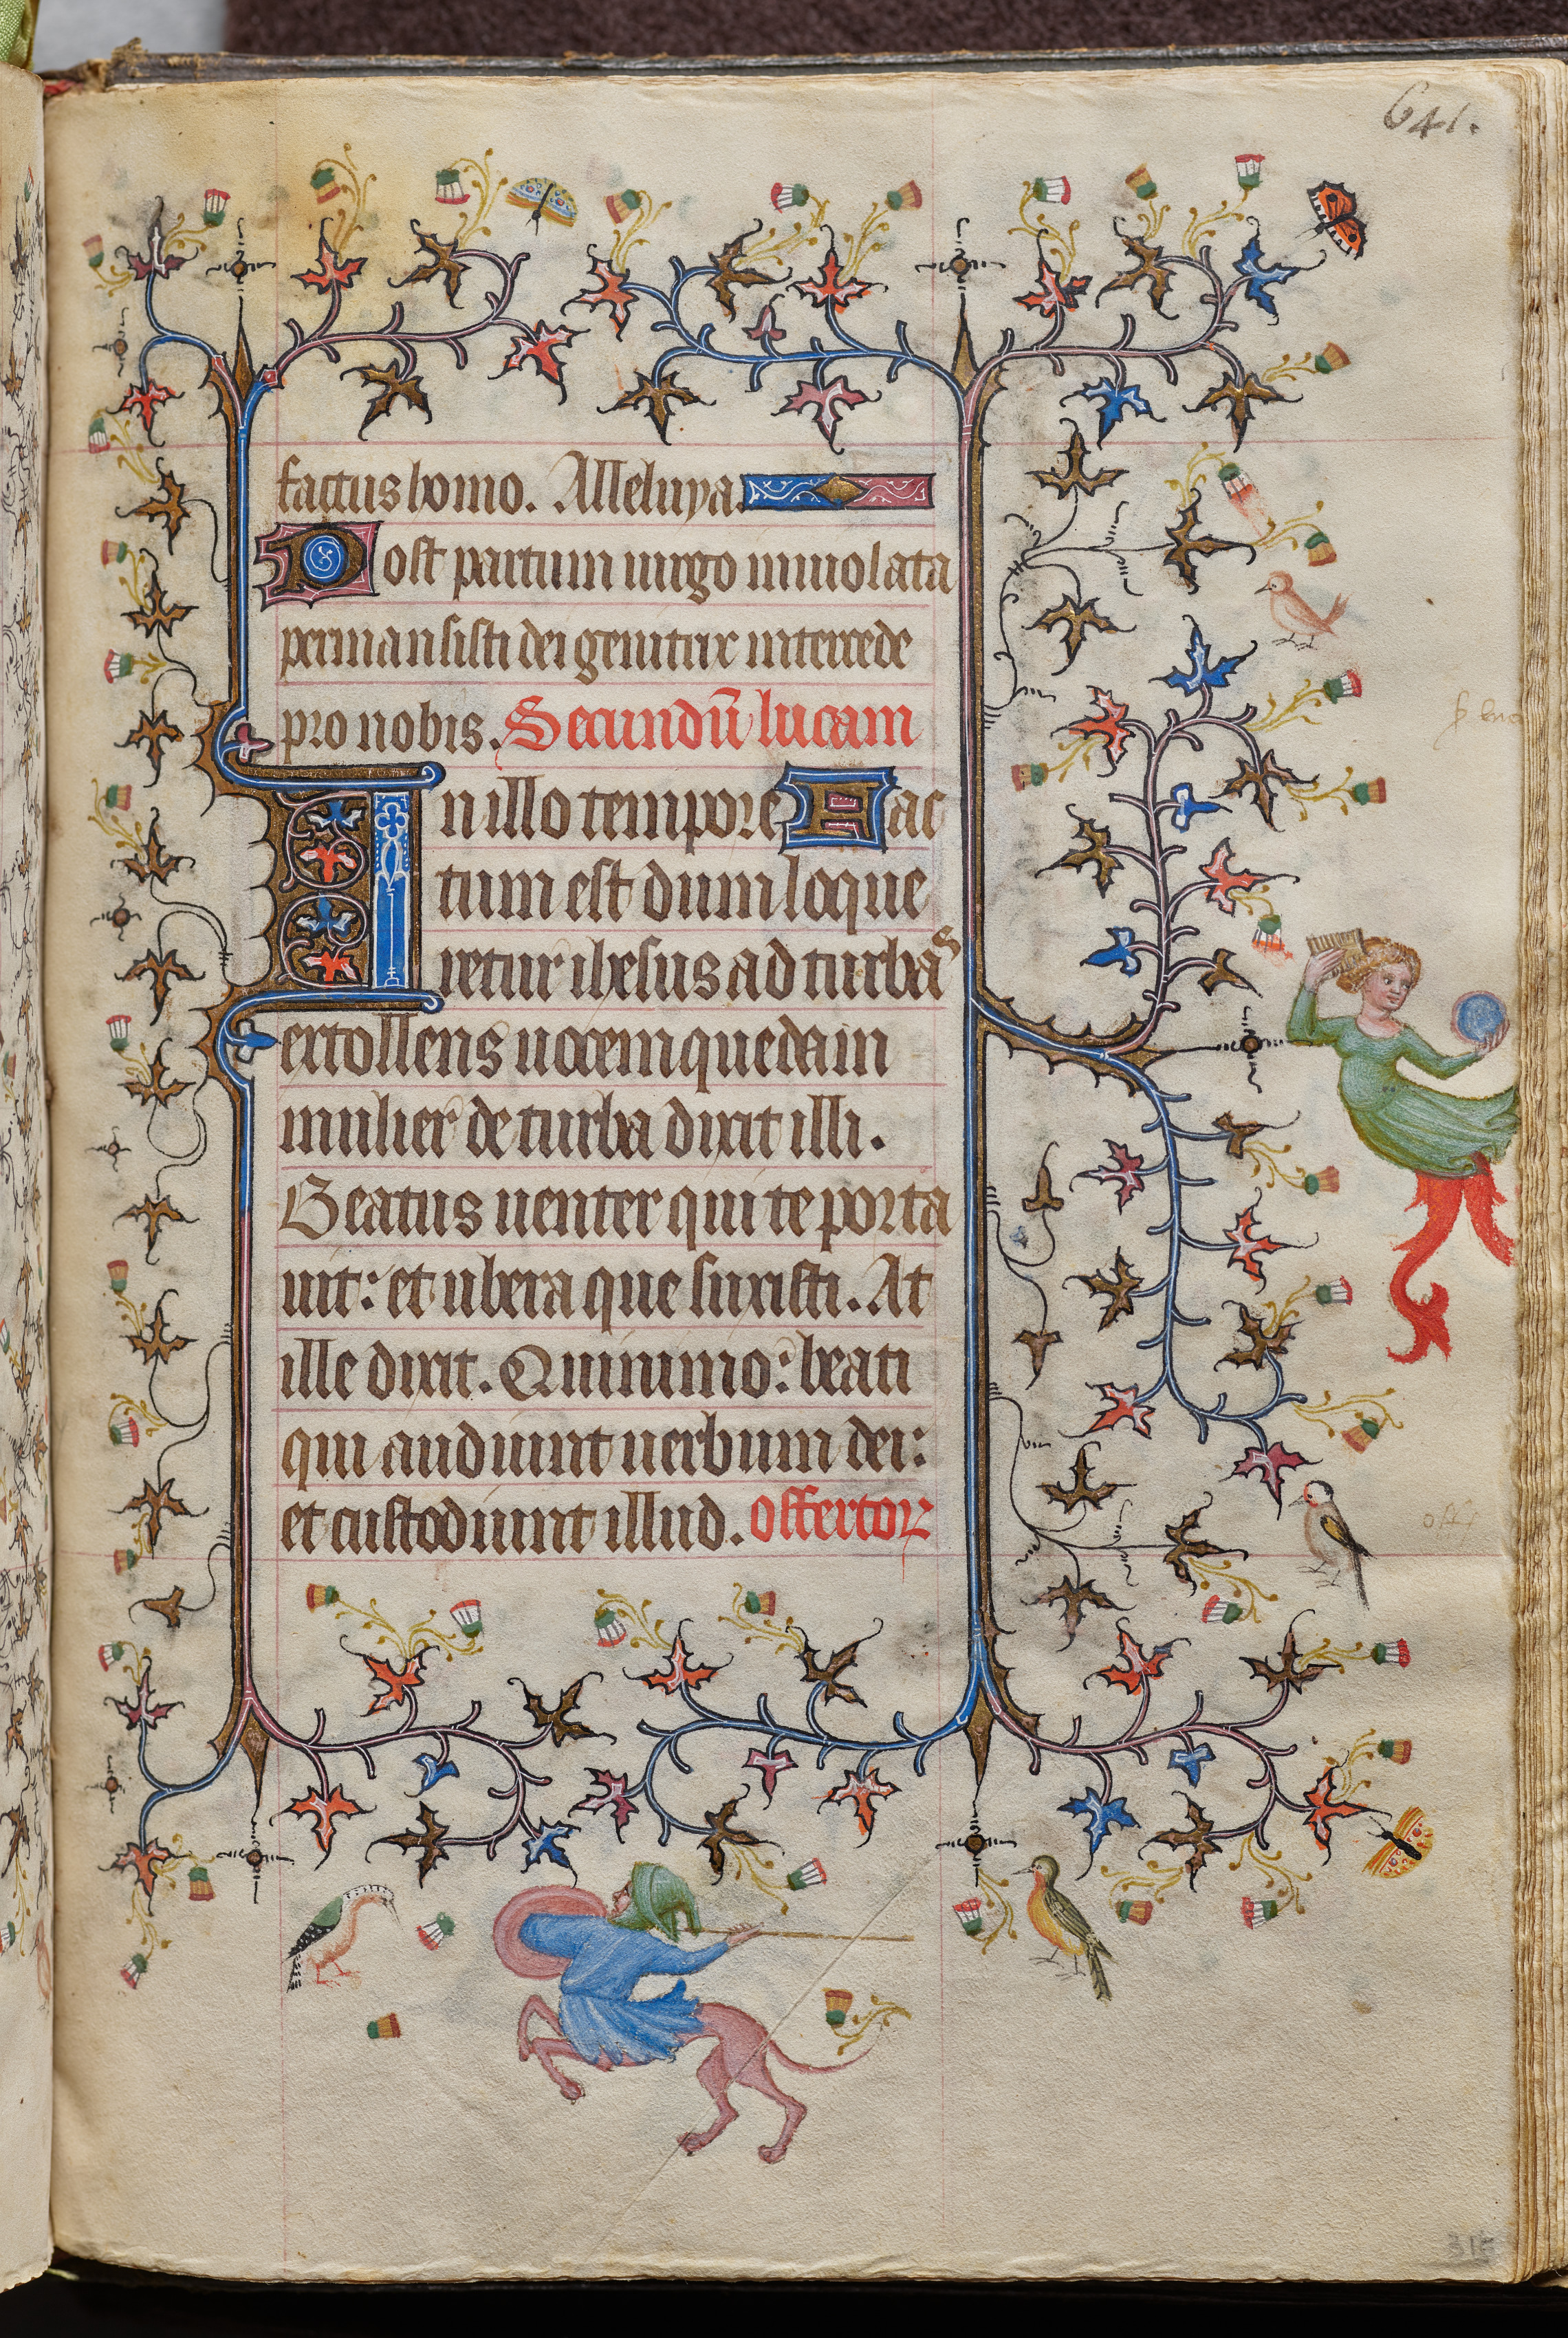 641.
factus homo. Alleluya.
Post partum uirgo inuiolata
permansisti dei genitrix intercede
pro nobis. Secundū lucam
In illo tempore Fac
tum est dum loque
retur ihesus ad turbas
extollens uocem quedam
mulier de turba dixit illi.
Beatus uenter qui te porta
uit: et ubera que suxisti. At
ille dixit. Quinimo: beati
qui audiunt uerbum dei:
et custodiunt illud. offertoꝝ